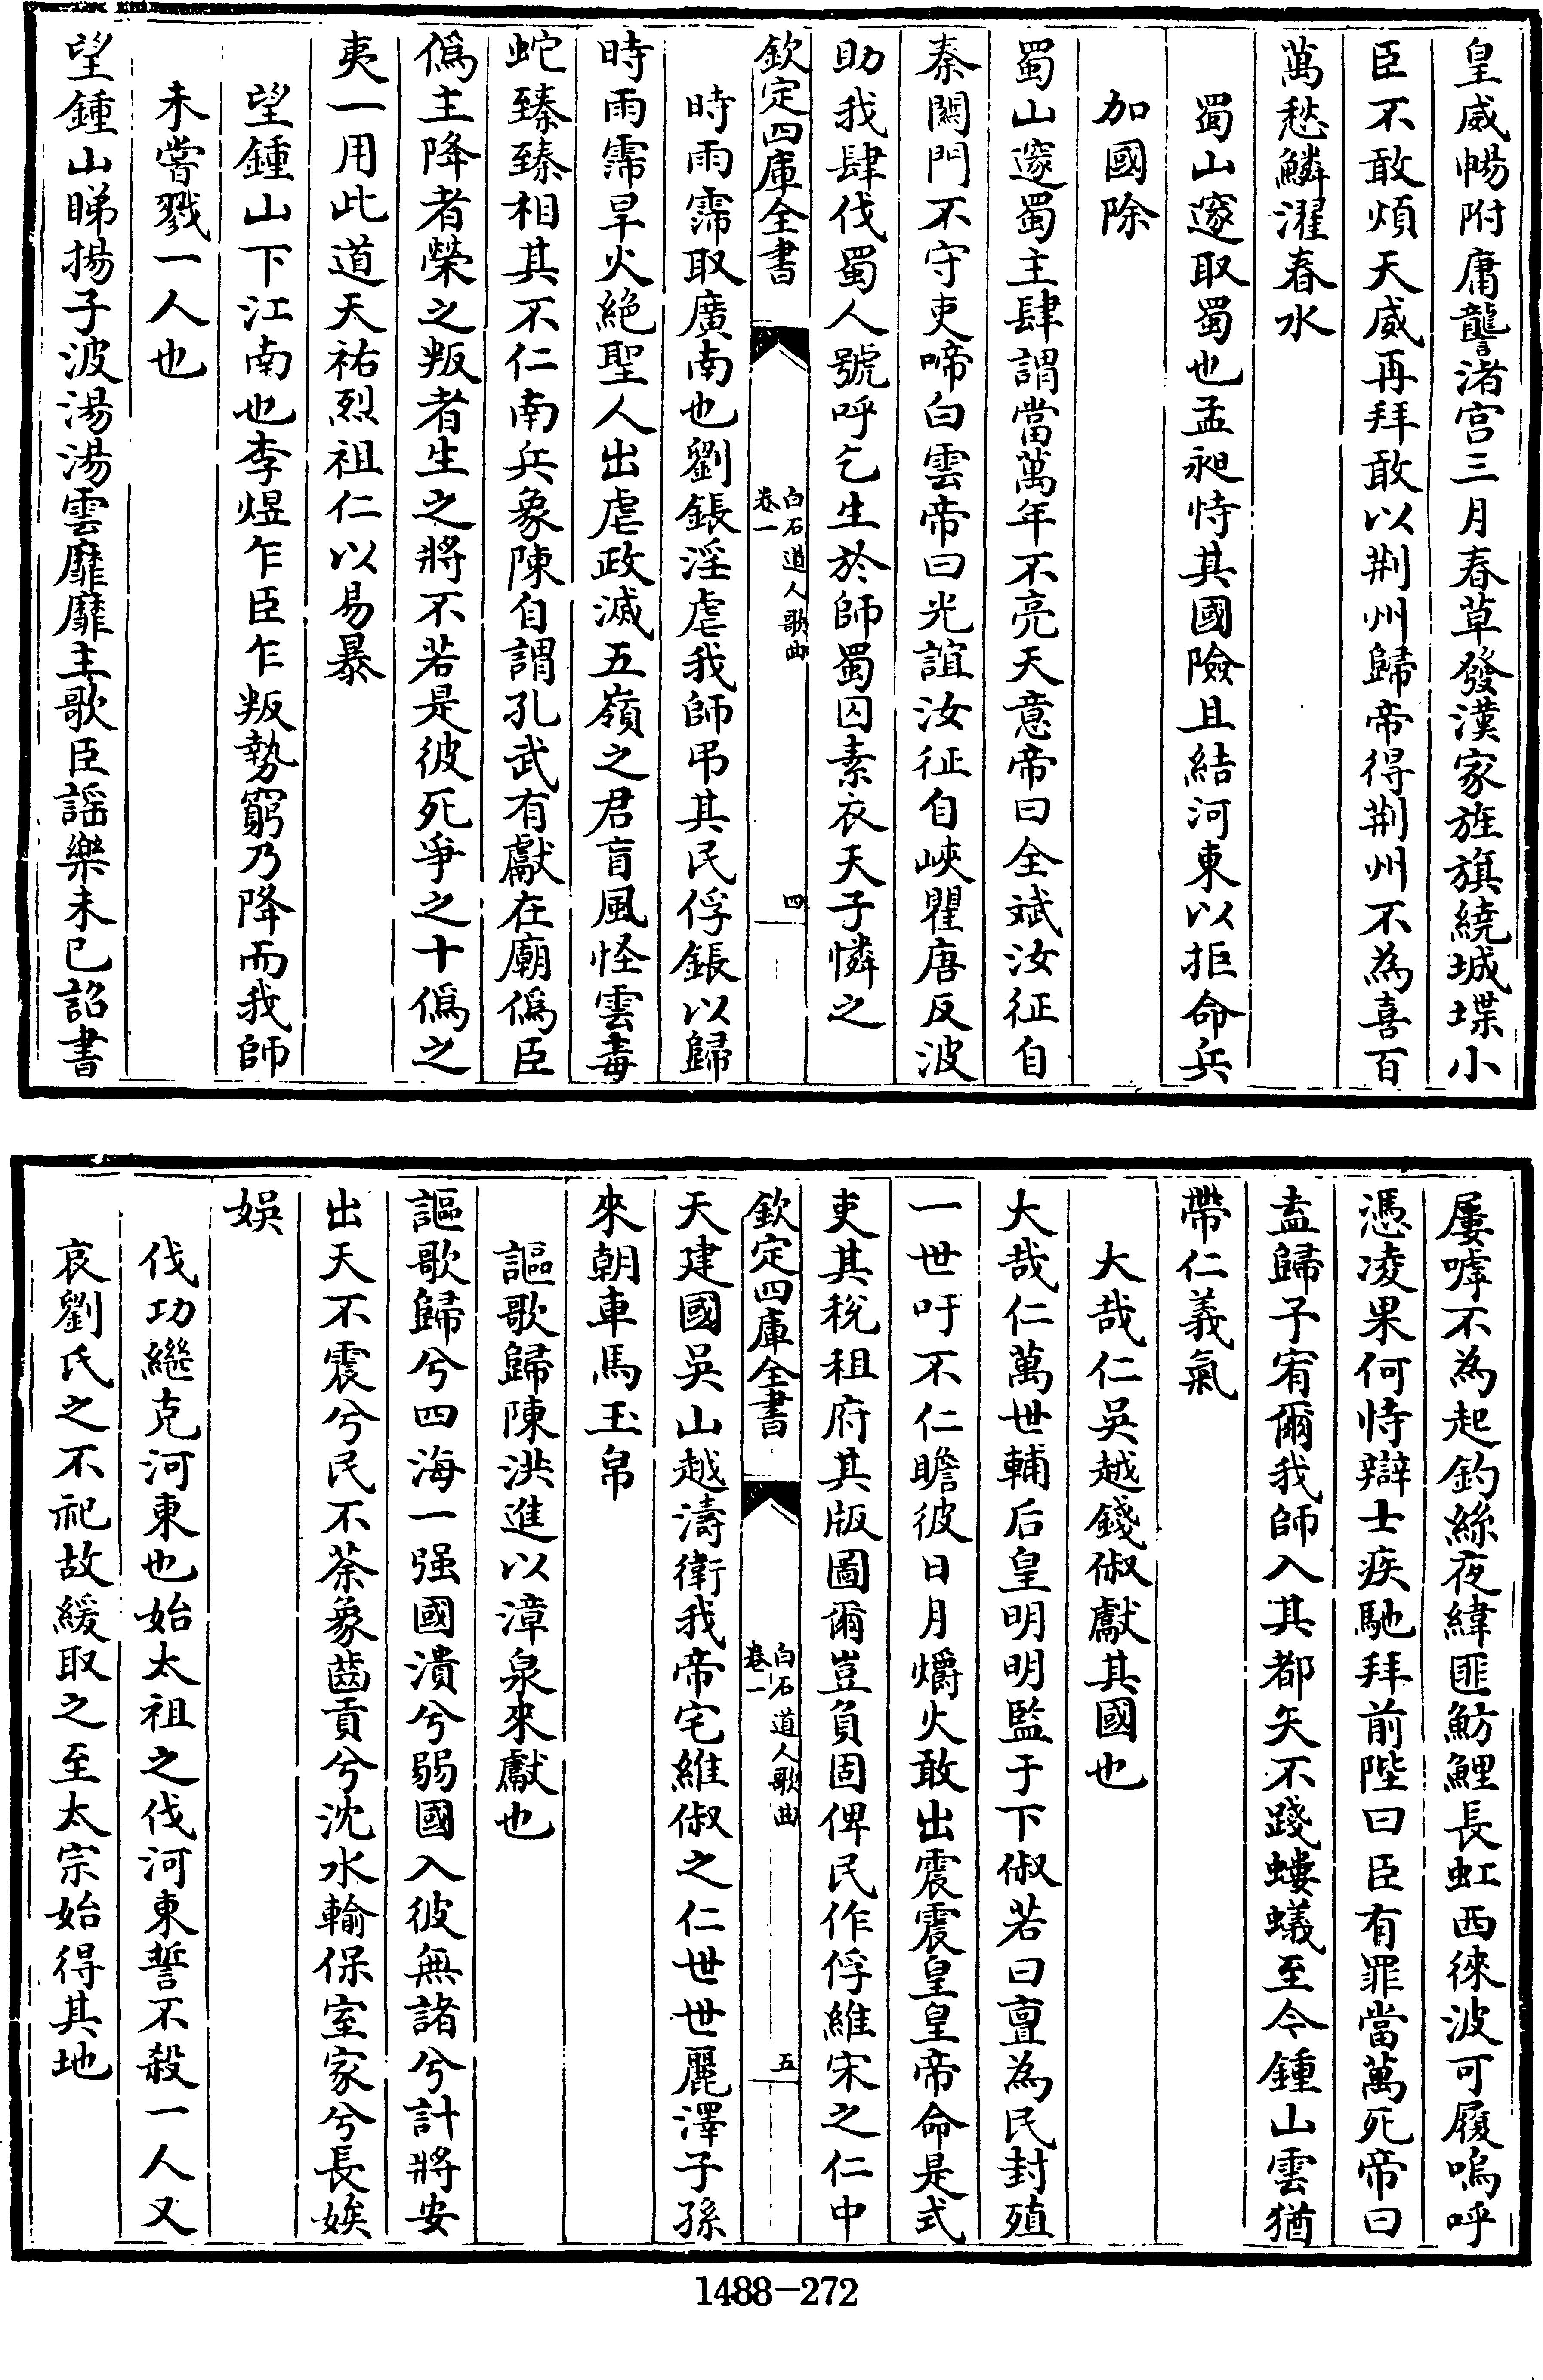 皇威暢附庸讋渚宫三月春草發漢家旌旗繞城堞小
臣不敢煩天威再拜敢以荆州歸帝得荆州不為喜百
萬愁鱗濯春水
蜀山邃取蜀也孟昶恃其國險且結河東以拒命兵
加國除
蜀山邃蜀主肆謂當萬年不亮天意帝曰全斌汝征自
秦闗門不守吏啼白雲帝曰光誼汝征自峽瞿唐反波
助我肆伐蜀人號呼乞生於師蜀囚素衣天子憐之
欽定四庫全書
白石道人歌曲
卷一
四
時雨霈取廣南也劉鋹淫虐我師弔其民俘鋹以歸
時雨霈旱火絶聖人出虐政滅五嶺之君盲風怪雲毒
蛇臻臻相其不仁南兵象陳自謂孔武有獻在廟僞臣
僞主降者榮之叛者生之將不若是彼死爭之十僞之
夷一用此道天祐烈祖仁以易暴
望鍾山下江南也李煜乍臣乍叛勢窮乃降而我師
未嘗戮一人也
望鍾山睇揚子波湯湯雲靡靡主歌臣謡樂未已詔書
屢嘑不為起釣絲夜緯匪魴鯉長虹西徠波可履嗚呼
憑凌果何恃辯士疾馳拜前陛曰臣有罪當萬死帝曰
盍歸子宥爾我師入其都矢不踐螻蟻至今鍾山雲猶
帶仁義氣
大哉仁吳越錢俶獻其國也
大哉仁萬世輔后皇明明監于下俶若曰亶為民封殖
一世吁不仁瞻彼日月爝火敢出震震皇皇帝命是式
吏其稅租府其版圖爾豈負固俾民作俘維宋之仁中
欽定四庫全書
白石道人歌曲
卷一
五
天建國吳山越濤衛我帝宅維俶之仁世世麗澤子孫
來朝車馬玉帛
謳歌歸陳洪進以漳泉來獻也
謳歌歸兮四海一强國潰兮弱國入彼無諸兮計將安
出天不震兮民不荼象齒貢兮沈水輸保室家兮長娭
娛
伐功繼克河東也始太祖之伐河東誓不殺一人又
哀劉氏之不祀故緩取之至太宗始得其地
1488-272